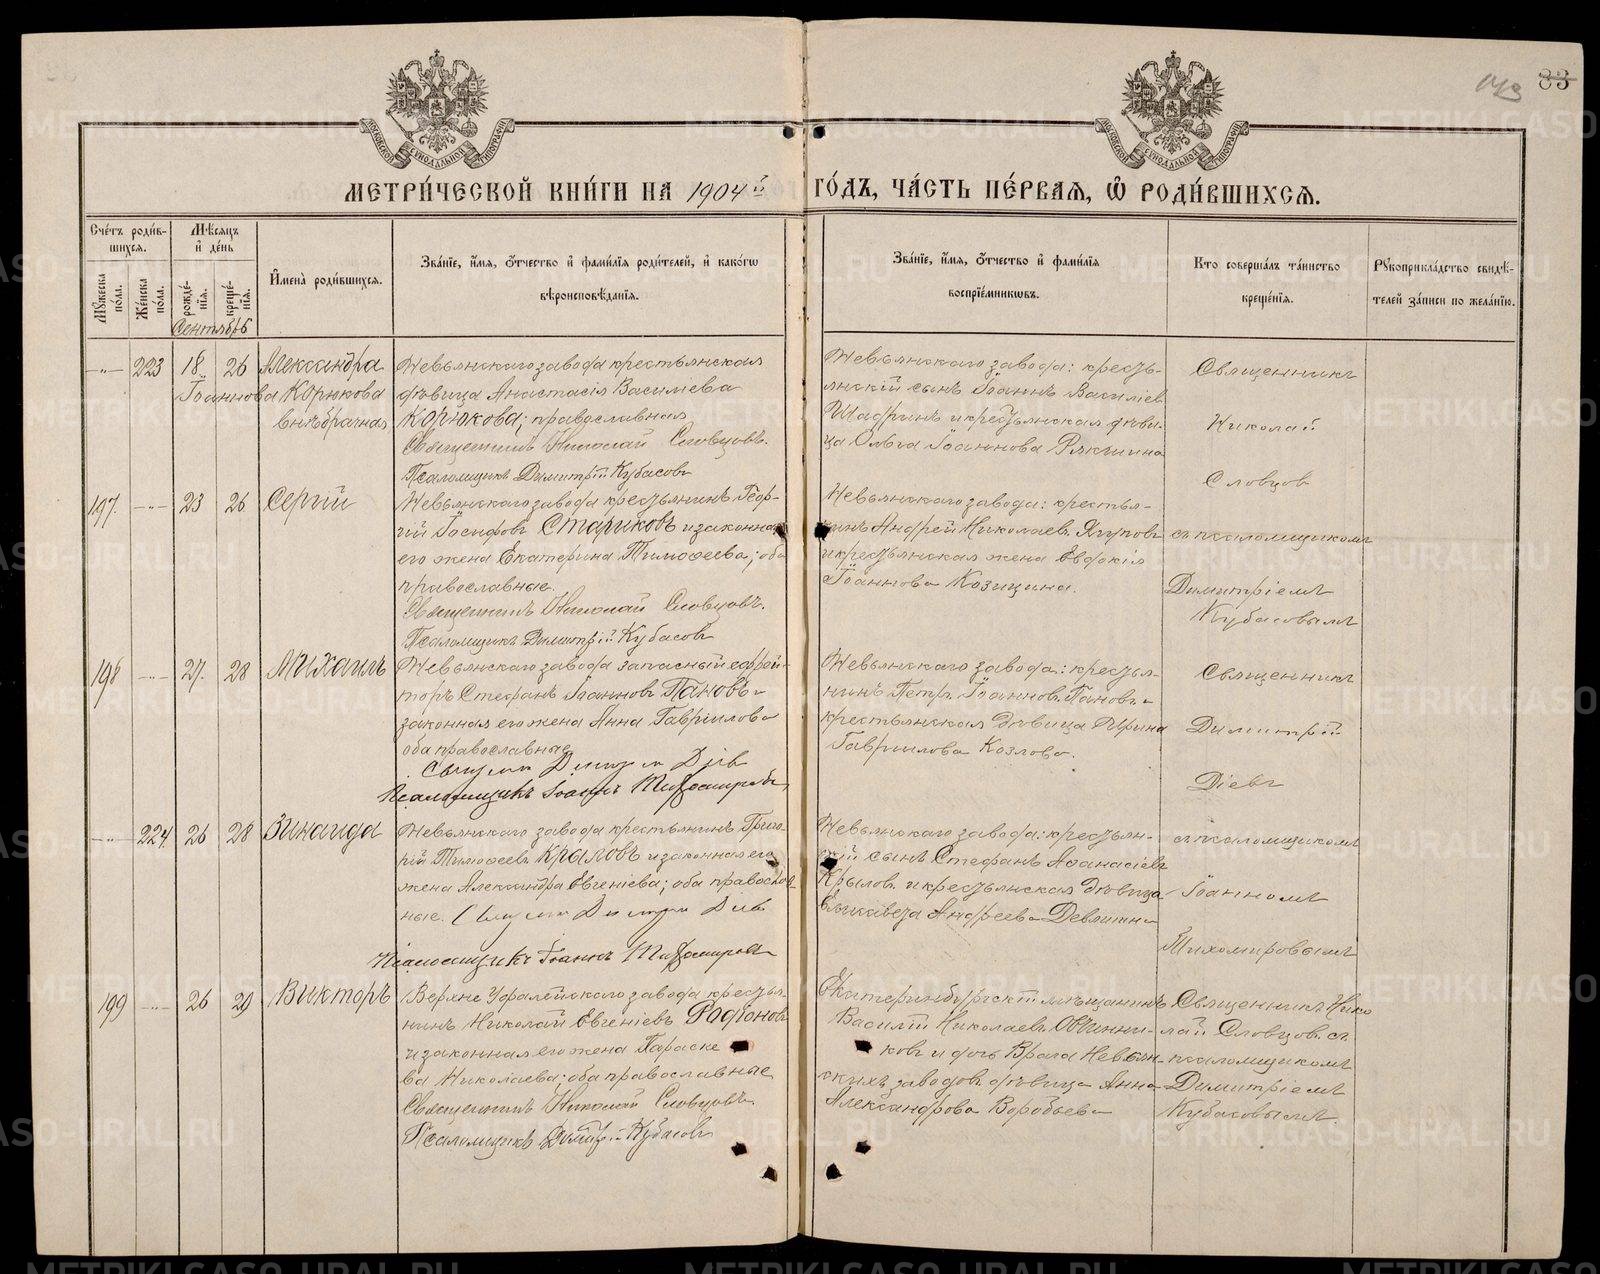 83
МОСКОВСКОЙ СУНОДАЛЬНОЙ ТИПОГРАФІИ
МОСКОВСКОЙ СУНОДАЛЬНОЙ ТИПОГРАФІИ
МЕТРИ́ЧЕСКОЙ КНИ́ГИ НА 1904й ГО́ДЪ, ЧА́СТЬ ПЕ́РВАЯ, Ѡ РОДИ́ВШИХСЯ.
Сче́тъ роди́в-
шихся.
Мꙋ́жеска по́ла.
Же́нска по́ла.
Мѣ́сяцъ
и де́нь
рожде́-
нія.
креще́-
нія.
Имена̀ роди́вшихся.
Зва́ніе, и́мя, о́тчество и фами́лія роди́телей, и како́гѡ
вѣроисповѣ́данія.
Зва́ніе, и́мя, о́тчество и фами́лія
воспріе́мникѡвъ.
Кто соверша́лъ та́инство
креще́нія.
Рꙋкоприкла́дство свидѣ́-
телей за́писи по жела́нію.
Сентябрь
223 18 26 Александра
Іоаннова Корюкова
внѣбрачная
Невьянскаго завода крестьянская
дѣвица Анастасія Васильева
Корюкова; православная
Священникъ Николай Словцовъ.
Псаломщикъ Димитрій Кубасовъ
Невьянскаго завода: кресть-
янскій сынъ Іоаннъ Василіев
Шадринъ и крестьянская дѣви-
ца Ольга Іоаннова
Священникъ
Николай
Словцовъ
197. 23 26 Сергій
Невьянскаго завода крестьянинъ Геор-
гій Іосифовъ Стариковъ и законная
его жена Екатерина Тимоѳеева; оба
православные.
Священникъ Николай Словцовъ.
Псаломщикъ Димитрій Кубасовъ
Невьянскаго завода: крестья-
нинъ Андрей Николаевъ
и крестьянская жена Евдокія
Іоаннова Козицина.
съ псаломщикомъ
Димитріемъ
Кубасовымъ
198 27. 28 Михаилъ
Невьянскаго завода запасный ефрей-
торъ Стефанъ Іоанновъ Пановъ и
законная его жена Анна Гавріилова
оба православные
Димитрій Діевъ
Псаломщикъ Іоаннъ Тихомировъ
Невьянскаго завода: крестья-
нинъ Петръ Іоанновъ Пановъ и
крестьянская дѣвица Ирина
Гавріилова Козлова.
Священникъ
Димитрій
Діевъ
224. 26 28 Зинаида
Невьянскаго завода крестьянинъ Григо-
рій Тимоѳеевъ Краловъ и законная его
жена Александра Евгеніева; оба православ-
ные. Димитрій Діевъ
Псаломщикъ Іоаннъ Тихомировъ
Невьянскаго завода: крестьян-
скій сынъ Стефанъ Аѳанасіевъ
Крыловъ и крестьянская дѣвица
Елисавета Андреева
съ псаломщикомъ
Іоанномъ
Тихомировымъ
199 26 29 Викторъ
Верхне Уфалейскаго завода крестья-
нинъ Николай Евгеніевъ Родіоновъ
и законная его жена Параске
ва Николаева; оба православные
Священникъ Николай Словцовъ.
Псаломщикъ Димитрій Кубасовъ
Екатеринбургскій мѣщанинъ
Василій Николаевъ Овчинни-
ковъ и дочь Врача Невьян-
скихъ заводовъ дѣвица Анна
Александрова Воробьева
Священникъ Нико
лай Словцовъ съ
псаломщикомъ
Димитріемъ
Кубасовымъ.
METRIKI.GASO-URAL.RU